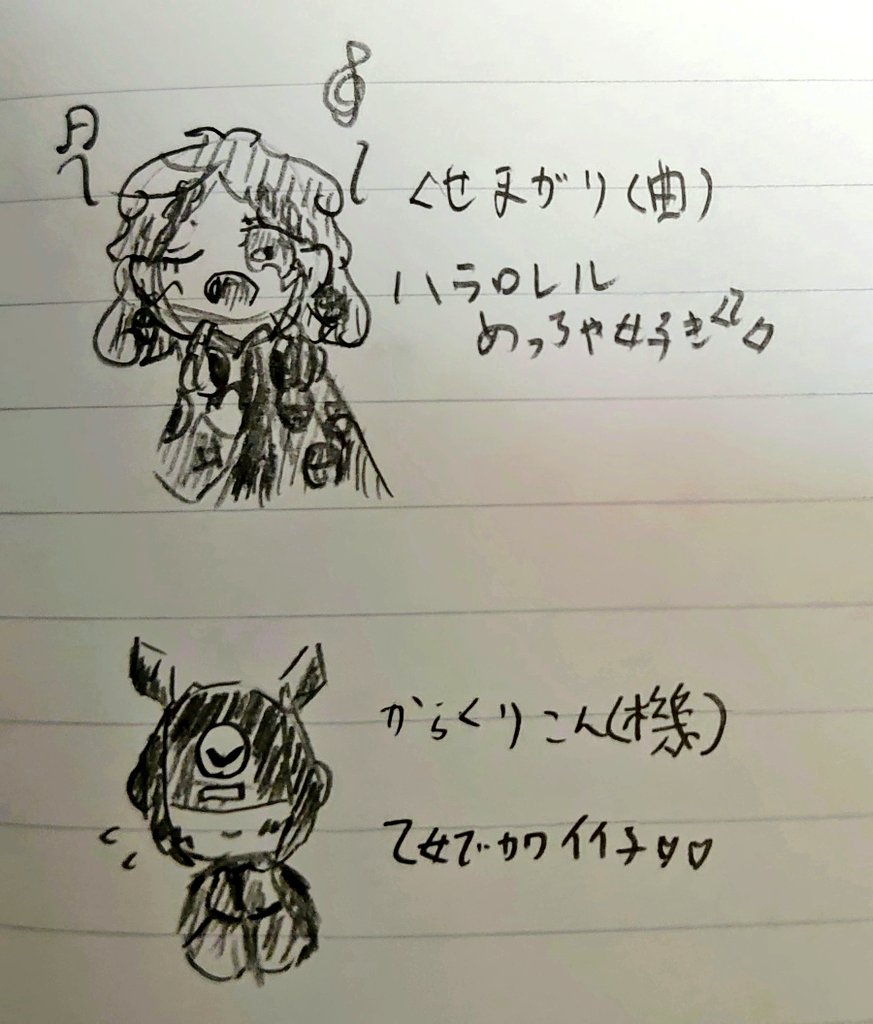 くせまがり(曲)
ハラロレル
めっちゃ好き♡♡
からくりこん(機)
乙女でカワイイ子♡♡